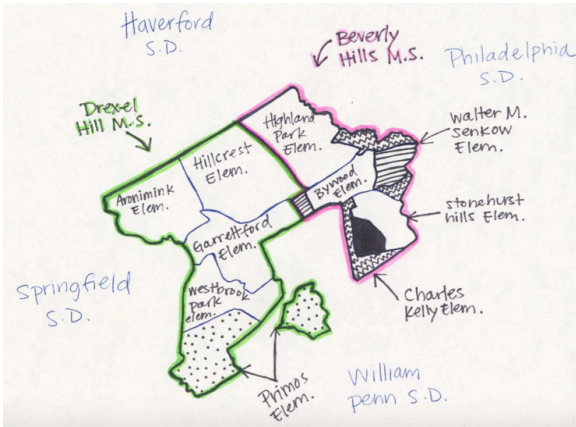 Haverford
S.D.
Beverly
Hills M.S.
Philadelphia
S.D.
Drexel
Hill M.S.
Highland
Park
Elem.
Walter M.
Senkow
Elem.
Hillcrest
Elem.
Aronimink
Elem.
Bywood
Elem.
Stonehurst
Hills Elem.
Garrettford
Elem.
Springfield
S.D.
Westbrook
Park
Elem.
Charles
Kelly Elem.
Primos
Elem.
William
Penn S.D.